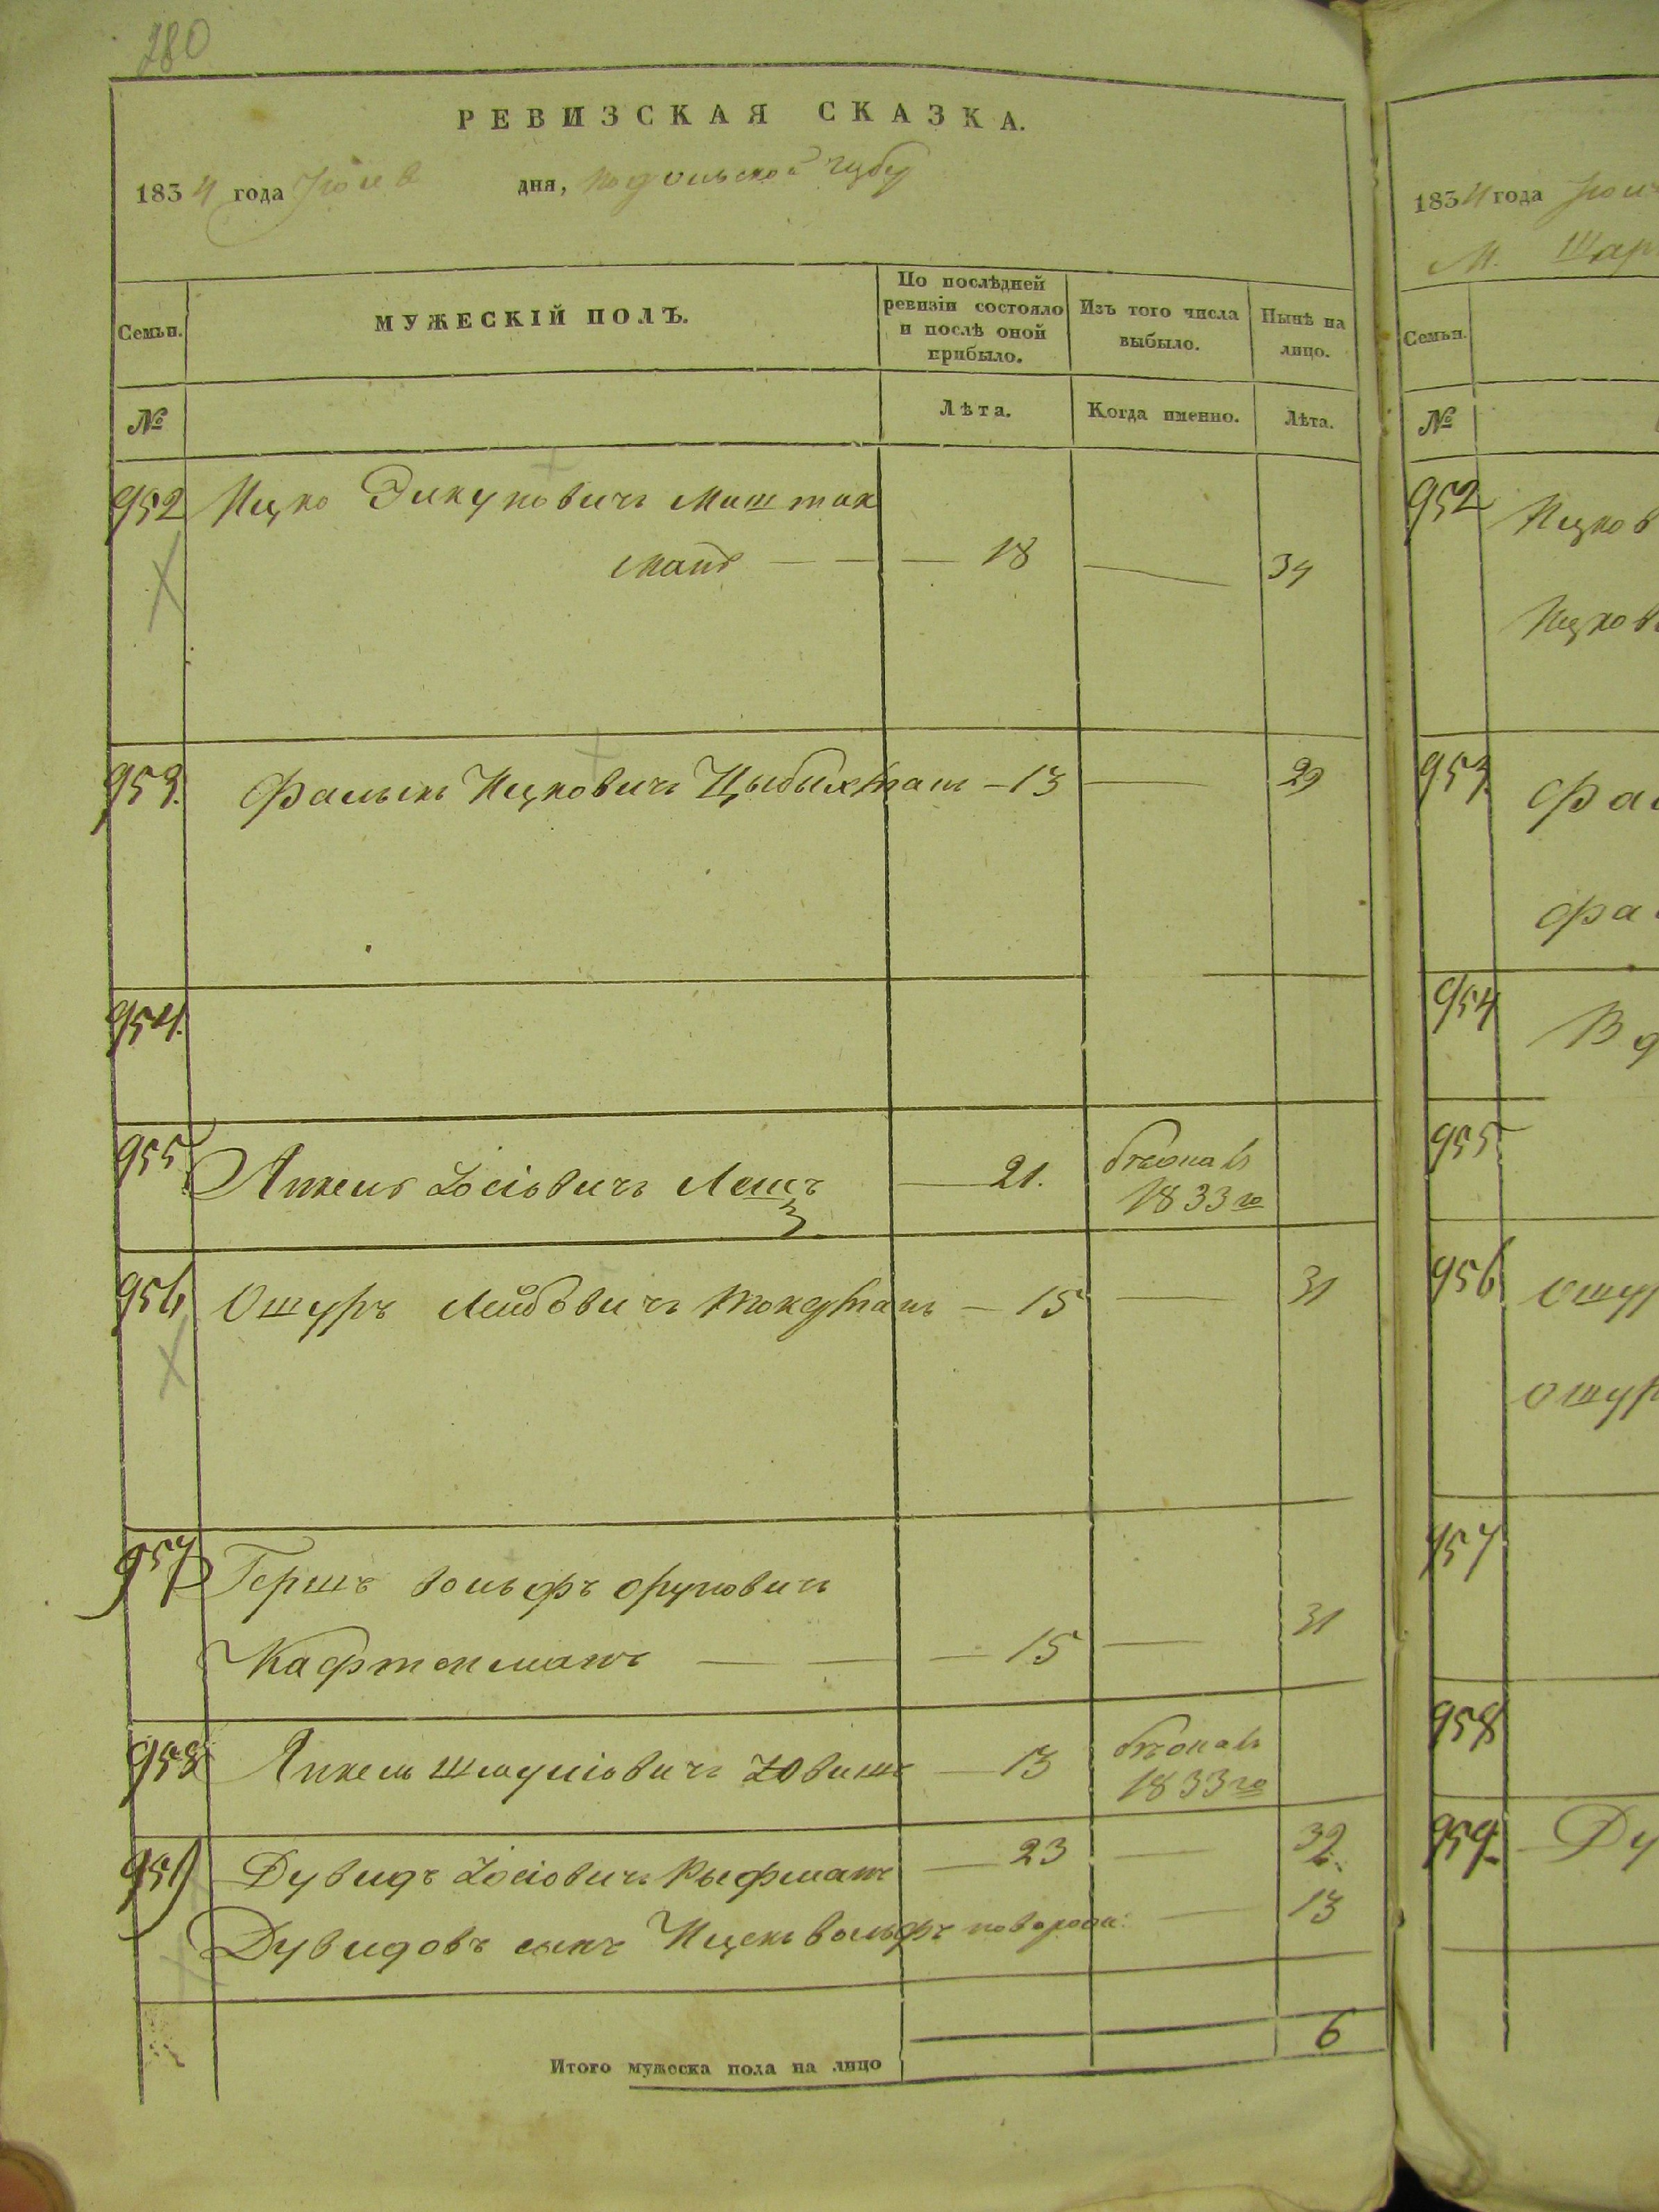 280
РЕВИЗСКАЯ СКАЗКА.
1834 года Июля дня, Подольской губер
Семьи. МУЖЕСКІЙ ПОЛЪ. По послѣдней ревизіи состояло и послѣ оной прибыло. Изъ того числа выбыло. Нынѣ на лицо.
№ Лѣта. Когда именно. Лѣта.
952 Ицко
манъ — — — 18 — 34
953. Фалькъ Ицковичъ — 13 — 29
954.
955 Янкель Іосіовичъ — 21. 1833го
956 Ошуръ Лейбовичъ — 15 — 31
957 Гершъ Вольфъ Оруновичъ
Кафтонманъ — — — 15 — 31
958 Янкель Шмуліовичъ — 13 1833го
959 Дувидъ Іосіовичъ Рыфманъ — 23 — 39.
Дувидовъ сынъ Ицекъ Вольфъ новорож: — 13
6
Итого мужеска пола на лицо
1834 года Іюля
М. Шар
Семьи.
№
952 Ицков
Ицков
953. Фал
Фа
954
955
956 Ошур
Ошур
957
958
959. Ду